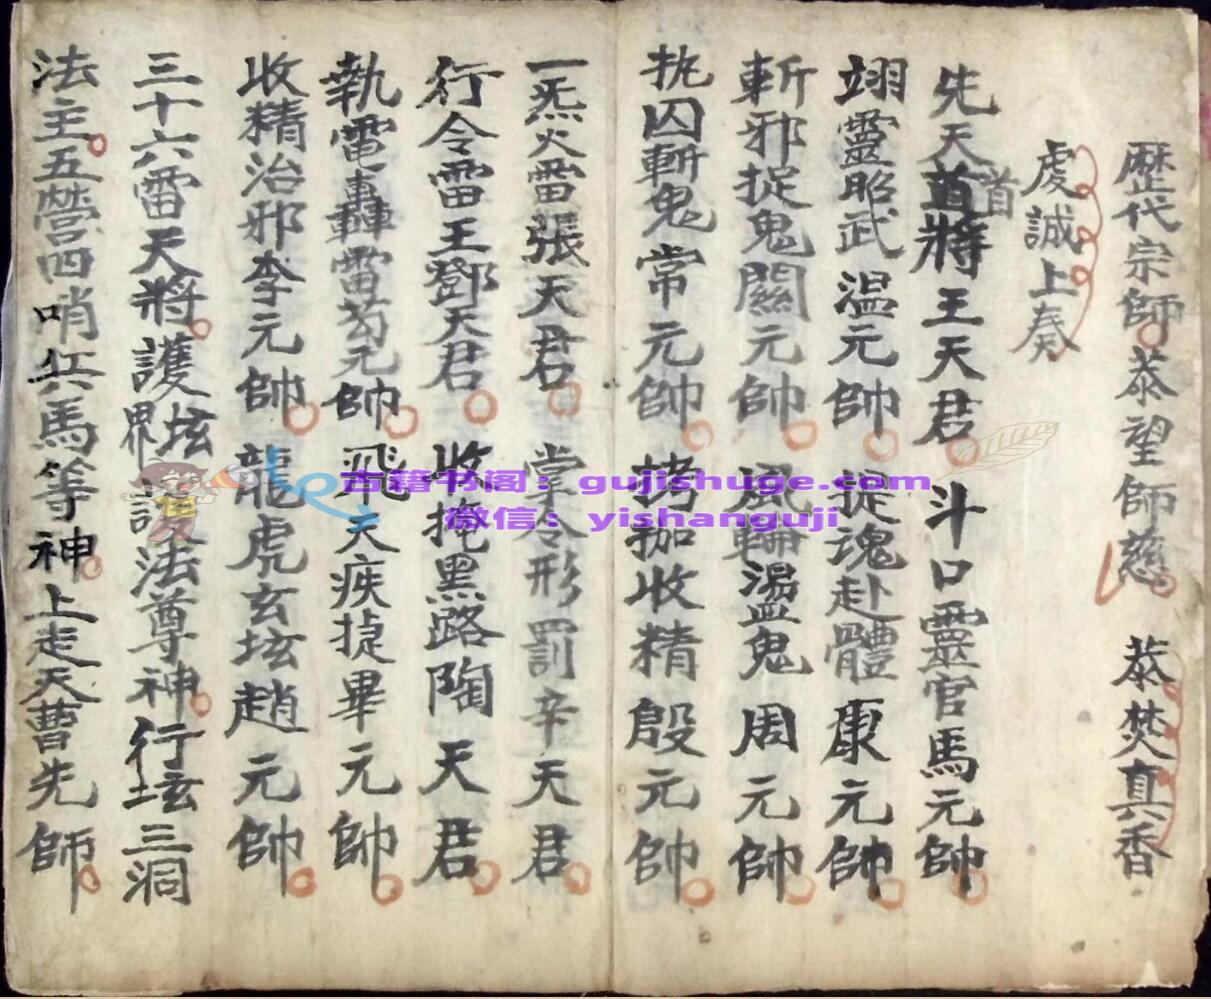 歷代宗師恭望師慈　恭焚真香
虔誠上奏
先天首將王天君　斗口靈官馬元帥
首
翊靈昭武溫元帥　捉魂赴體康元帥
斬邪捉鬼關元帥　風輪盪鬼周元帥
执囚斬鬼常元帥　拷抛收精殷元帥
一炁火雷張天君　掌令形罰辛天君
行令雷王鄧天君　收捲黑路陶天君
執電轟雷苟元帥　飛天疾捷畢元帥
收精治邪李元帥　龍虎玄坛趙元帥
三十六雷天將護坛護法尊神行坛三洞
界
法主五營四哨兵馬等神上走天曹先師
古籍书阁：gujishuge.com
微信：yishanguji